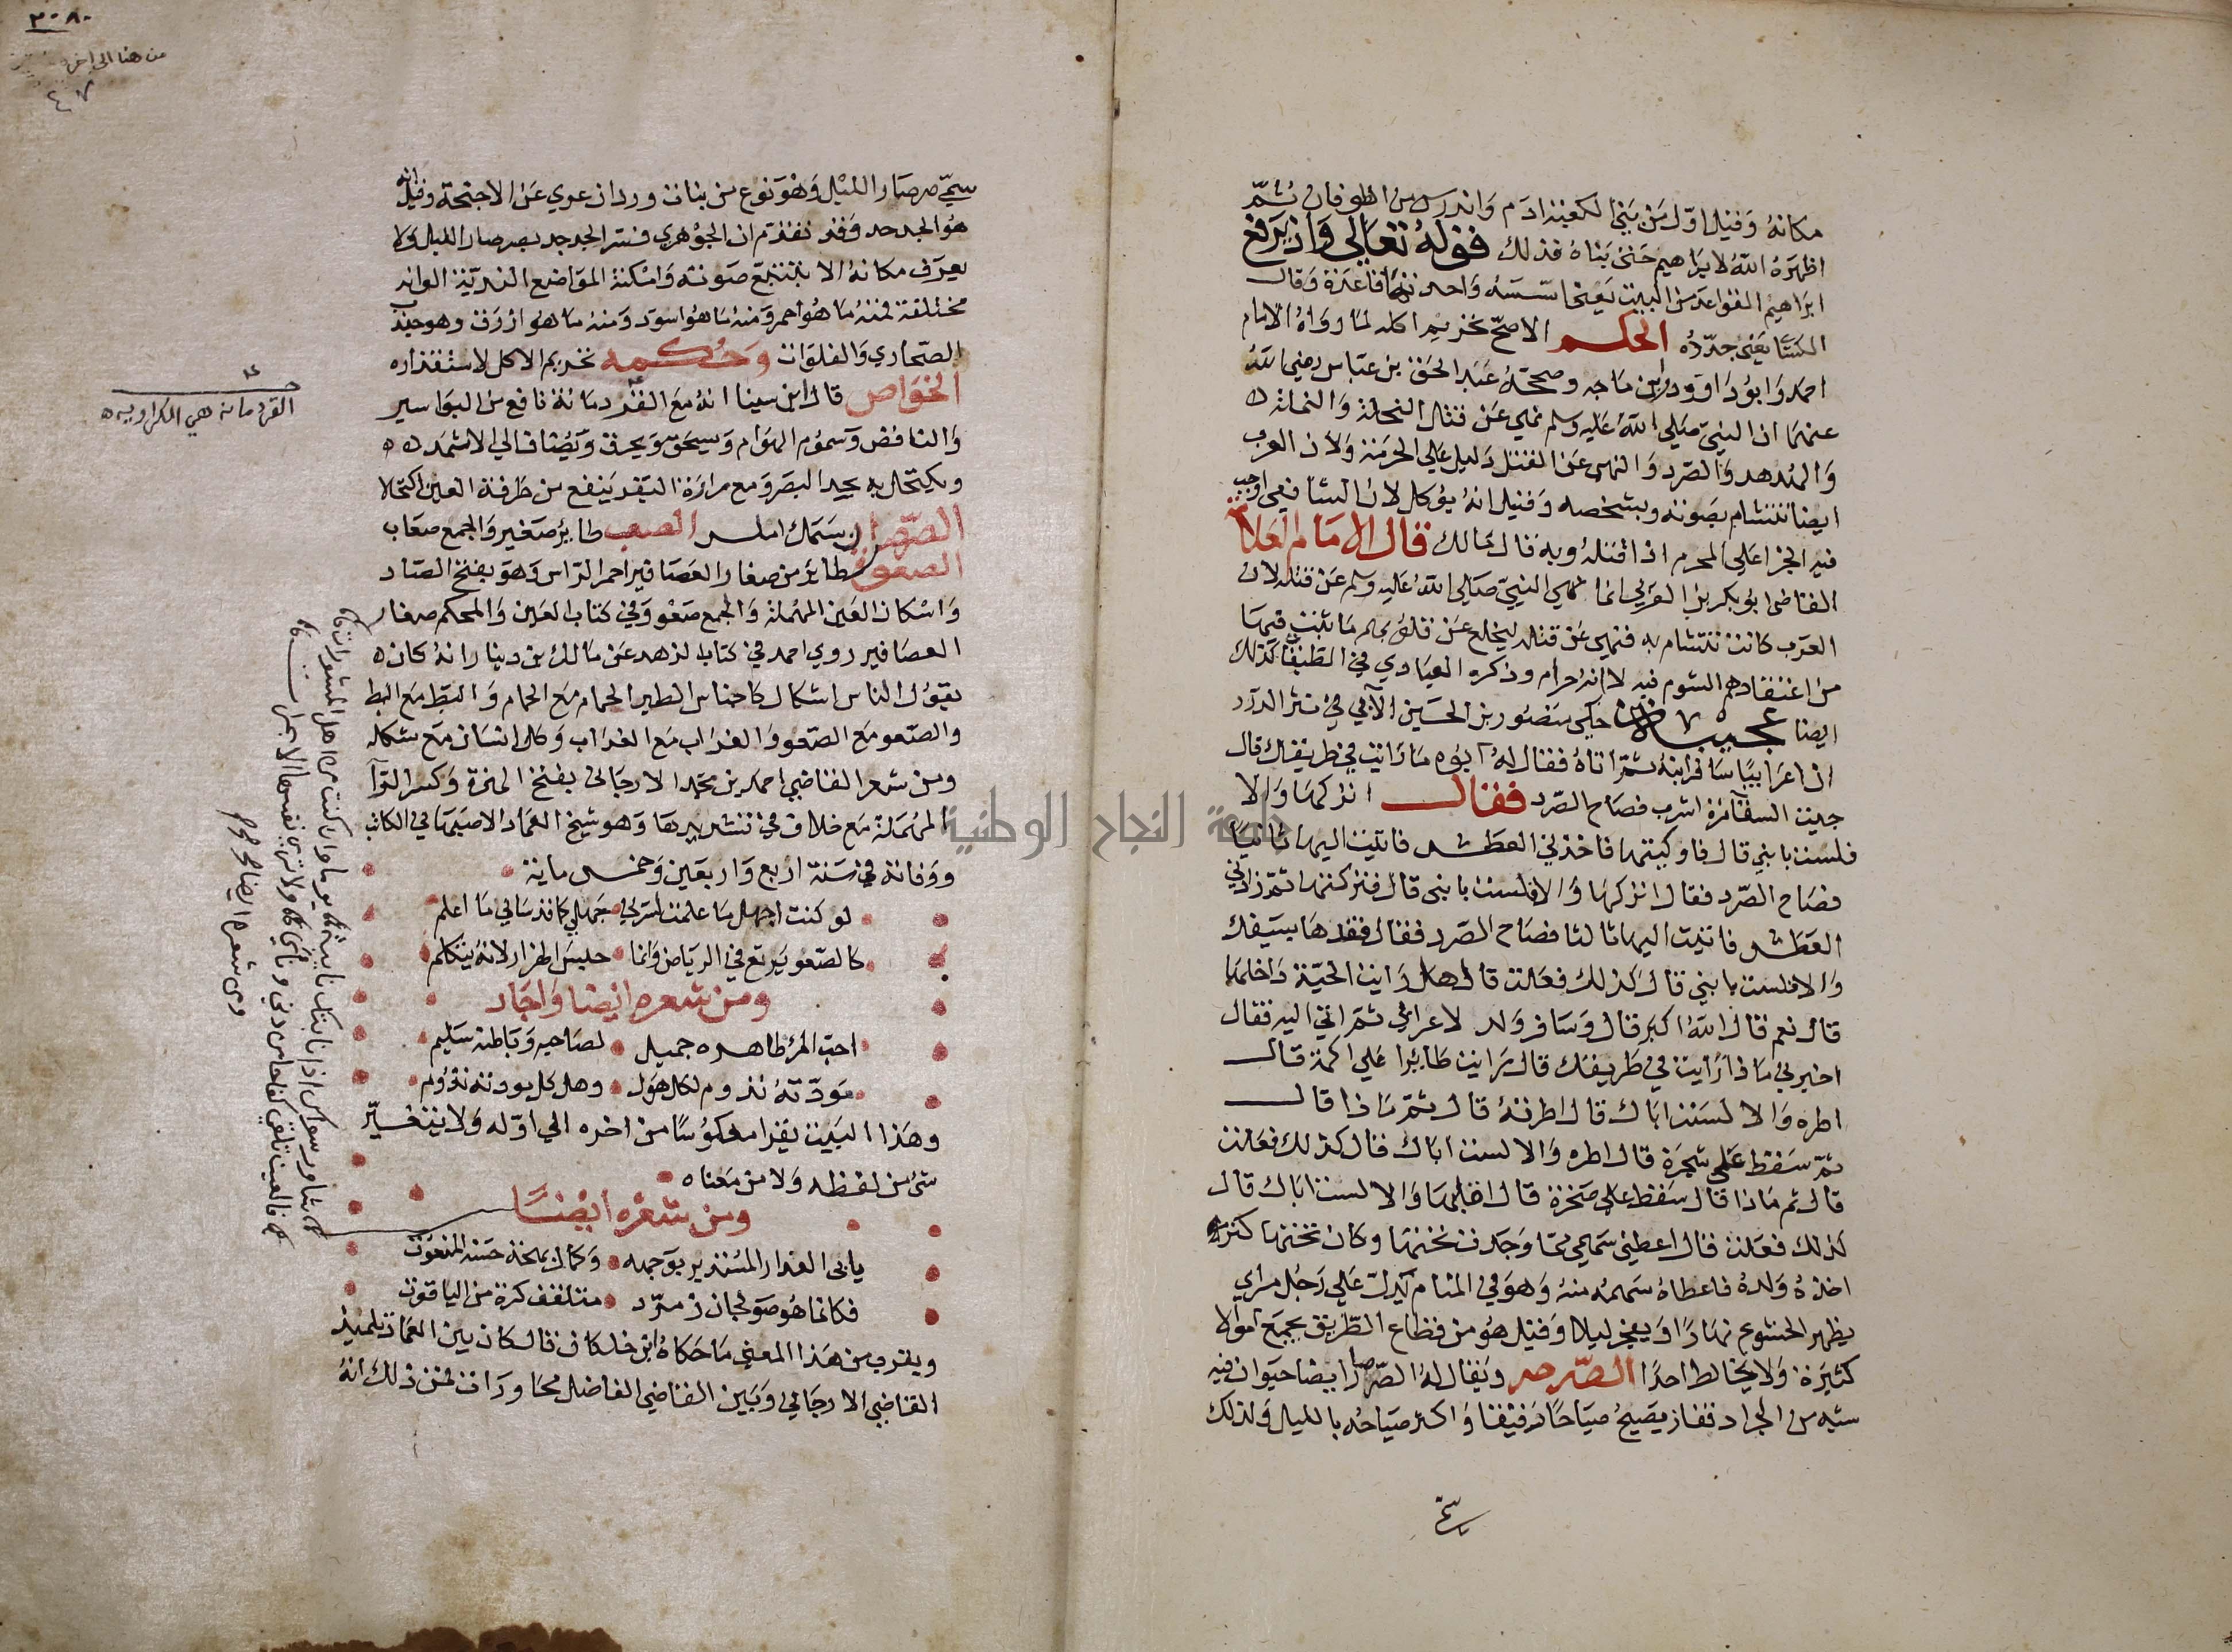 مكانه وقيل اول من بني الكعبة ادم واندرس من الطوفان ثم
اظهره الله لابراهيم حتى بناه فذلك قوله تعالى واذ يرفع
ابراهيم القواعد من البيت يعني اسسه واحدتها قاعدة وقال
الكسائي يعني جدده الحكم الاصح تحريم اكله لما رواه الامام
احمد وابو داوود وابن ماجه وصححه عبد الحق بن عباس رضي الله
عنهما ان النبي صلي الله عليه وسلم نهي عن قتل النحلة والنملة
والهدهد والصرد والنهي عن القتل دليل علي الحرمة ولان العرب
ايضا تتشام بصوته وبشخصه وقيل انه يوكل لان الشافعي اوجب
فيه الجزا علي المحرم اذا قتله وبه قال مالك قال الامام العلامة
القاضى ابو بكر بن العربي انما نهي النبي صلي الله عليه وسلم عن قتله لان
العرب كانت تتشام به فنهي عن قتله ليخلع عن قلوبهم ما ثبت فيها
من اعتقادهم الشوم فيه لا انه حرام وذكره العبادي في الطبقات كذلك
ايضا عجيبة حكي منصور بن الحسين الآبي في نثر الدرر
ان اعرابيا سافر ابنه ثم اتاه فقال له ابوه ما رايت في طريقك قال
جيت السقآ مرة اشرب فصاح الصرد فقال اتركها والا
فلست بابني قال فاوكيتها فاخذني العطش فاتيت اليها ثانيا
فصاح الصرد فقال اتركها والا فلست بابني قال فتركتها ثم زادني
العطش فاتيت اليها ثالثا فصاح الصرد فقال فقدها بسيفك
والا فلست بابني قال كذلك فعلت قال هل رايت الحية داخلها
قال نعم قال الله اكبر قال وسافر ولد لاعرابي ثم اتي اليه فقال
اخبرني ماذا رايت في طريقك قال رايت طائرا علي اكمة قال
اطره والا لست اباك قال اطرته قال ثم ماذا قال
ثم سقط علي شجرة قال اطره والا لست اباك قال كذلك فعلت
قال ثم ماذا قال سقط علي صخرة قال اقلبها والا لست اباك قال
كذلك فعلت قال اعطني سهمي مما وجدت تحتها وكان تحتها كنز
اخذه ولده فاعطاه سهمه منه وهو في المنام يدل علي رجل مراي
يظهر الخشوع نهارا ويفجر ليلا وقيل هو من قطاع الطريق يجمع اموالا
كثيرة ولا يخالط احدا الصرصر ويقال له الصرصار ايضا حيوان فيه
شبه من الجراد قفاز يصيح صياحا رقيقا واكثر صياحه بالليل ولذلك
٣٠٨٠
من هنا الى اخر
سمي صرصار الليل وهو نوع من بنات وردان عري عن الاجنحة وقيل انه
هو الجدجد وقد تقدم ان الجوهري فسر الجدجد بصرصار الليل ولا
يعرف مكانه الا بتتبع صوته وامكنة المواضع الندية الوانه
مختلفة فمنه ما هو احمر ومنه ما هو اسود ومنه ما هو ازرق وهو جندب
الصحاري والفلوات وحكمه تحريم الاكل لاستقذاره
الخواص قال ابن سينا انه مع القردمانة نافع من البواسير
والنافض وسموم الهوام ويسحق ويحرق ويضاف الي الاثمد
ويكتحل به يحد البصر ومع مرارة البقر ينفع من طرفة العين اكتحالا
الصرصران سمك املس الصعب طاير صغير والجمع صعاب
الصعوة طائر من صغار العصافير احمر الراس وهو بفتح الصاد
واسكان العين المهملة والجمع صعو وفي كتاب العين والمحكم صغار
العصافير روي احمد في كتاب الزهد عن مالك بن دينار انه كان
يقول الناس اشكال كاجناس الطير الحمام مع الحمام والبط مع البط
والصعو مع الصعو والغراب مع الغراب وكل انسان مع شكله
ومن شعر القاضي احمد بن محمد الارجاني بفتح الهمزة وكسر الرآ
المهملة مع خلاف في تشديدها وهو شيخ العماد الاصبهاني الكاتب
ووفاته في سنة اربع واربعين وخمس ماية
لو كنت اجهل ما علمت لسرني جهلي كما قد ساني ما اعلم
كالصعو يرتع في الرياض وانما حبس الهزار لانه يتكلم
ومن شعره ايضا واجاد
احب المرء ظاهره جميل لصاحبه وباطنه سليم
مودته تدوم لكل هول وهل كل مودته تدوم
وهذا البيت يقرا معكوسا من اخره الي اوله ولا يتغير
شئ من لفظه ولا من معناه
ومن شعره ايضا
يابى العذار المستدير بوجهه وكمال بهجة حسنه المنعوت
فكانما هو صولجان زمرد متلقف كرة من الياقوت
ويقرب من هذا المعني ما حكاه ابن خلكان قال كان بين العماد تلميذ
القاضي الارجاني وبين القاضي الفاضل محاورات فمن ذلك انه
القردمانه هي الكراويه
شاور سواك اذا نابتك نايبة يوما وان كنت من اهل المشورات
فالعين تلقي كفاحا من دني وناي ولا تري نفسها الا بمراة
ومن شعره ايضا
جامعة النجاح الوطنية